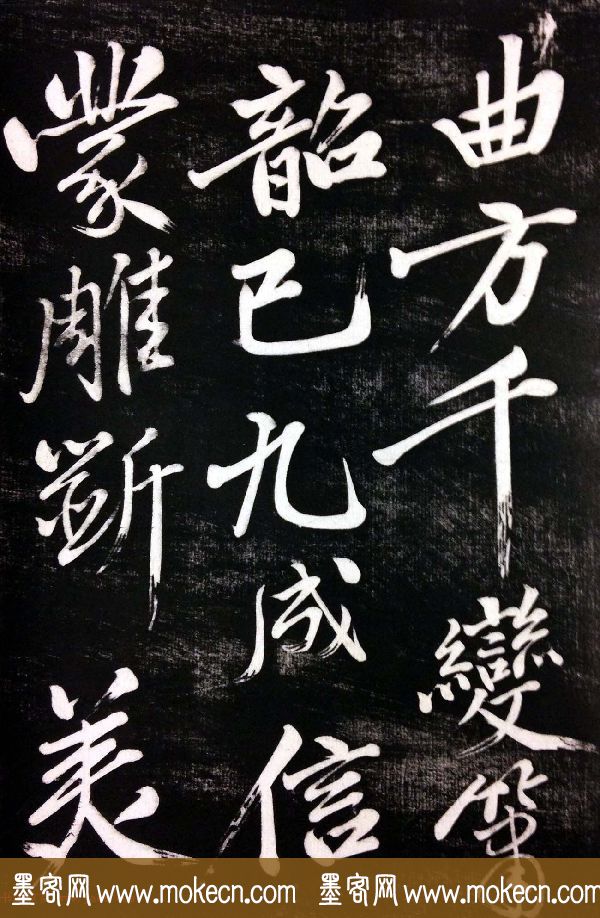 曲方千變簫
韶已九成信
蒙雕斲美
墨客网 www.mokecn.com 墨客网 www.mokecn.com